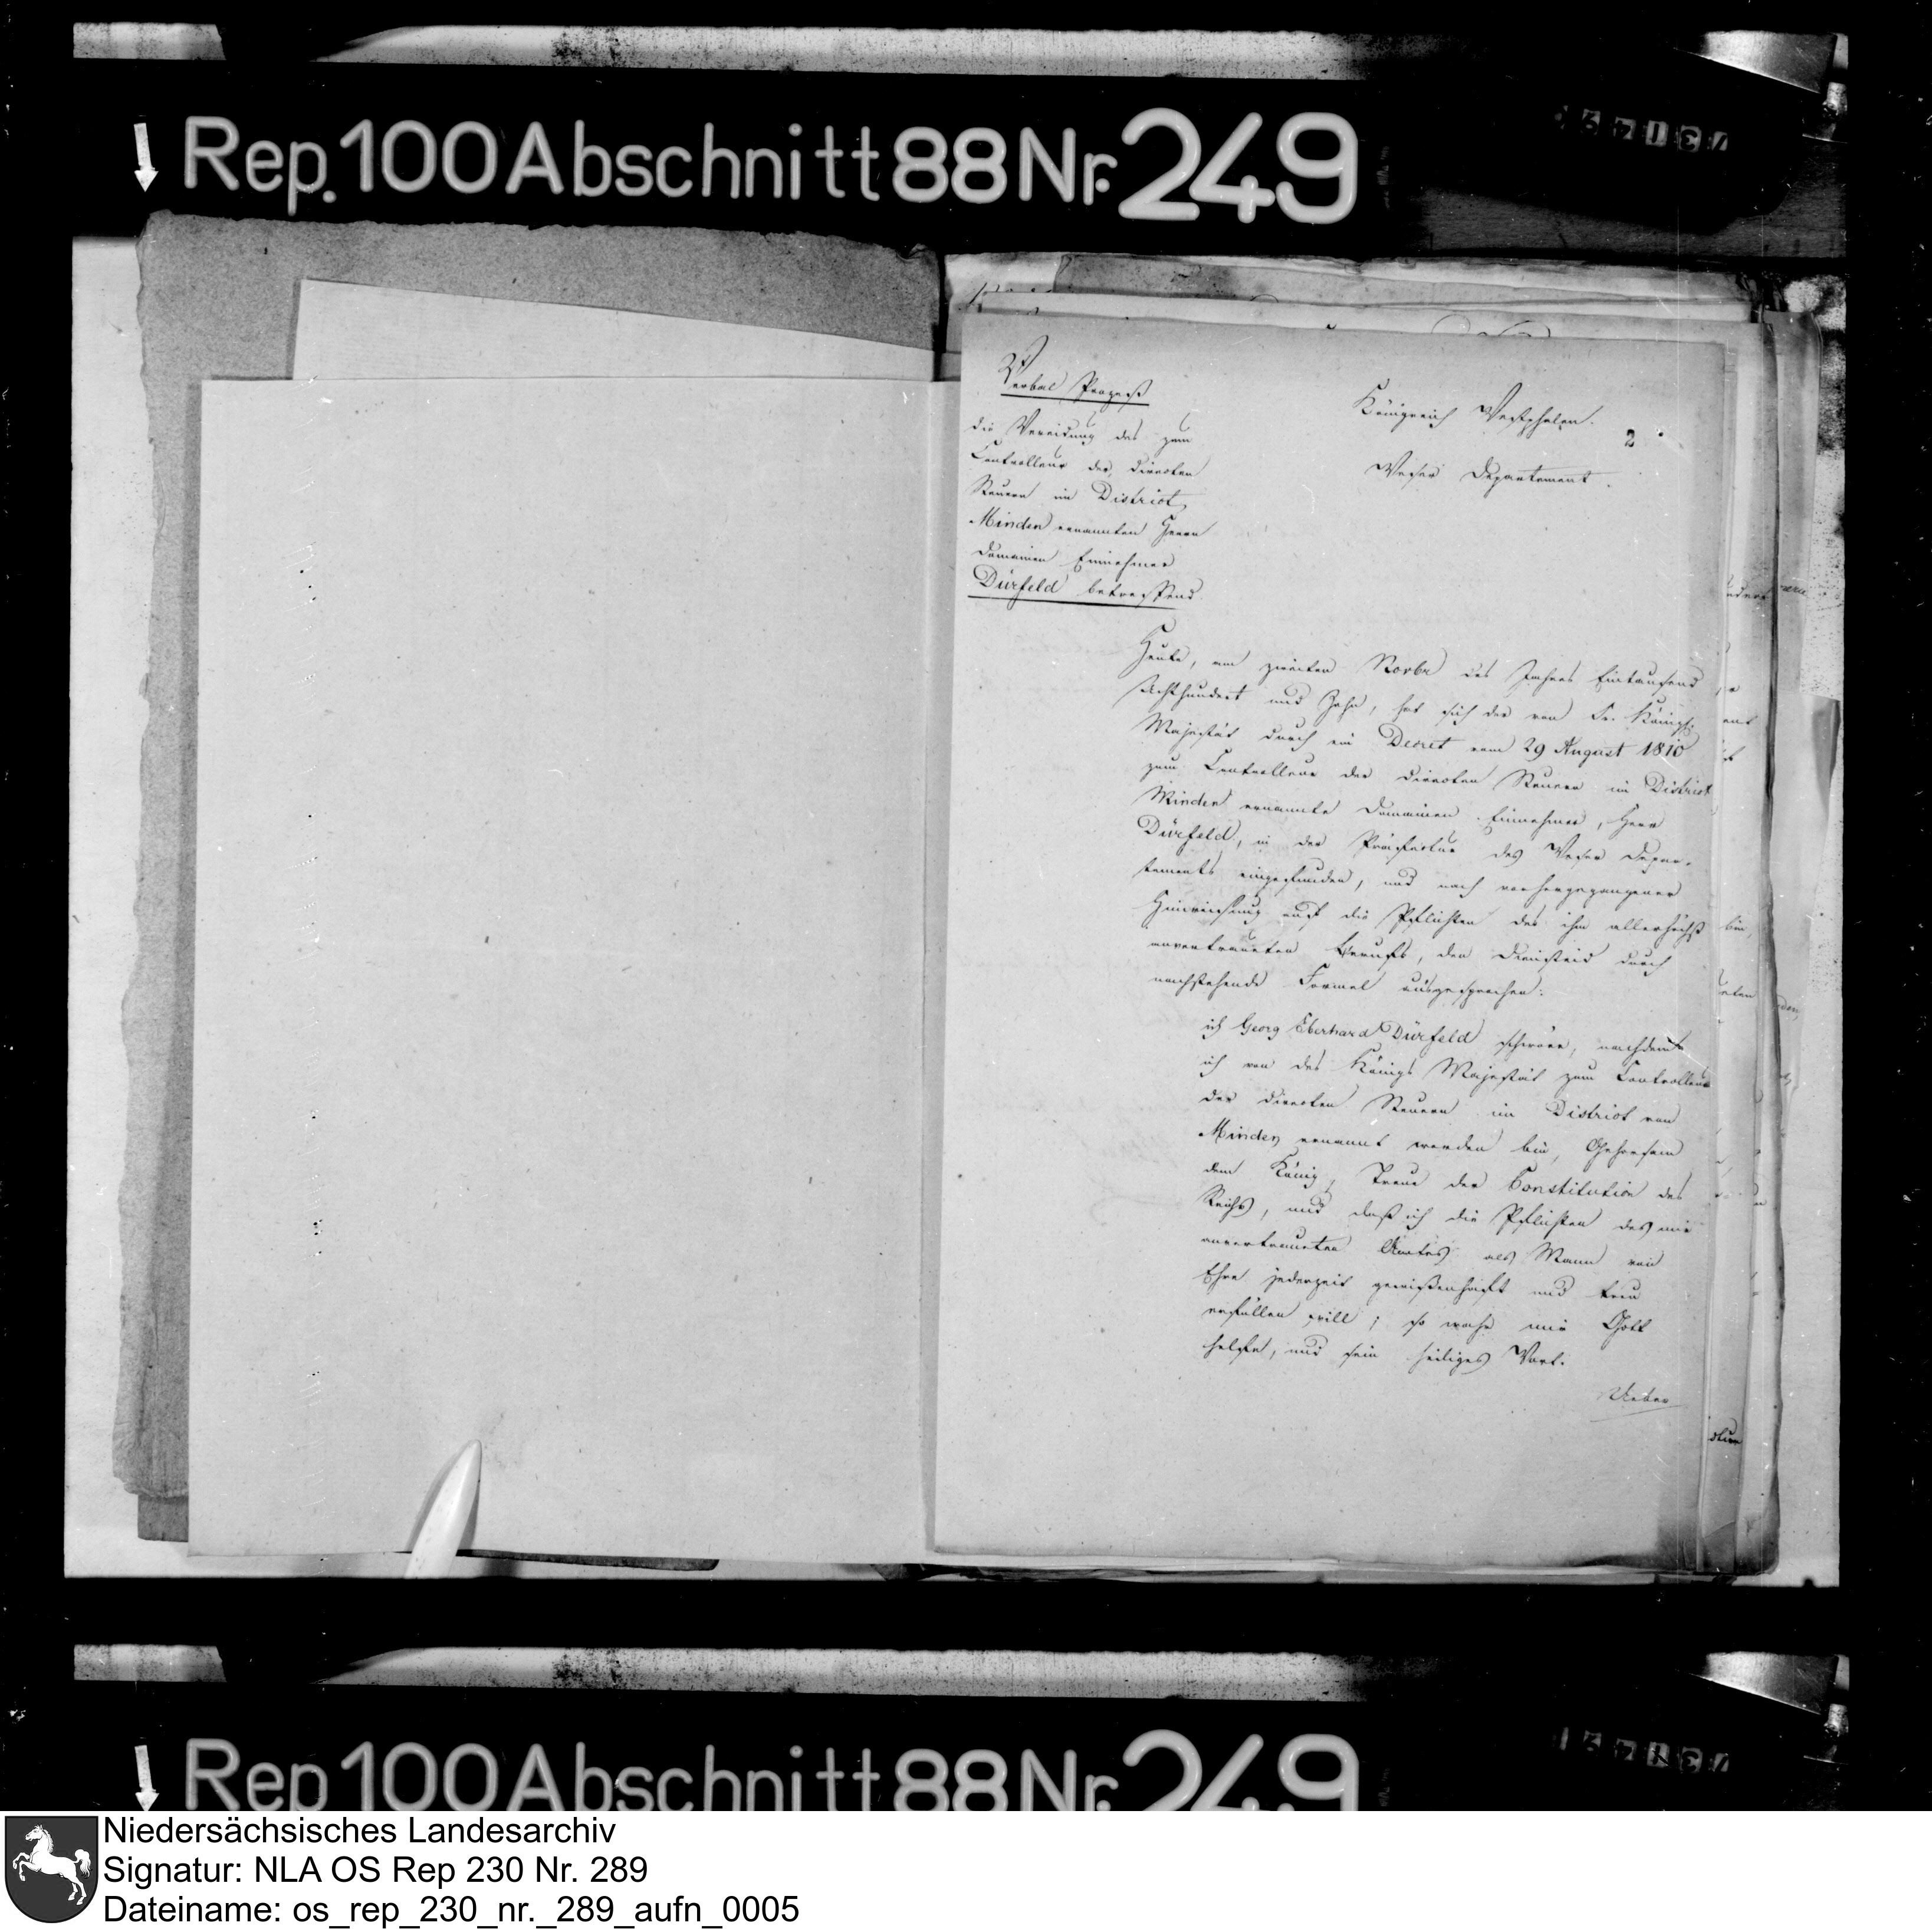 Rep. 100 Abschnitt 88 Nr. 249
Verbal Prozeß
die Vereidung des zum
Controlleur der directen
Steuern im District
Minden ernannten Herrn
Domainen Einnehmer
Dürfeld betreffend
Königreich Westphalen.
2
Weser Departement.
Heute, am zweiten Novbr des Jahres Eintausend
Achthundert und Zehn, hat sich der von Sr. Königl.
Majestät durch ein Decret vom 29 August 1810
zum Controlleur der directen Steuern im District
Minden ernannte Domainen Einnehmer, Herr
Dürfeld, in der Präfectur des Weser Depar-
tements eingefunden, und nach vorhergegangener
Hinweisung auf die Pflichten des ihm allerhöchst
anvertraueten Berufs, den Diensteid durch
nachstehende Formel ausgesprochen:
ich Georg Eberhard Dürfeld schwöre, nachdem
ich von des Königs Majestät zum Controlleur
der directen Steuern im District von
Minden ernannt worden bin, Gehorsam
dem König, Treue der Constitution des
Reichs, und daß ich die Pflichten des mir
anvertraueten Amtes als Mann von
Ehre jederzeit gewißenhaft und treu
erfüllen will; so wahr mir Gott
helfe, und sein heiliges Wort.
Ueber
Rep. 100 Abschnitt 88 Nr. 249
Niedersächsisches Landesarchiv
Signatur: NLA OS Rep 230 Nr. 289
Dateiname: os_rep_230_nr._289_aufn_0005